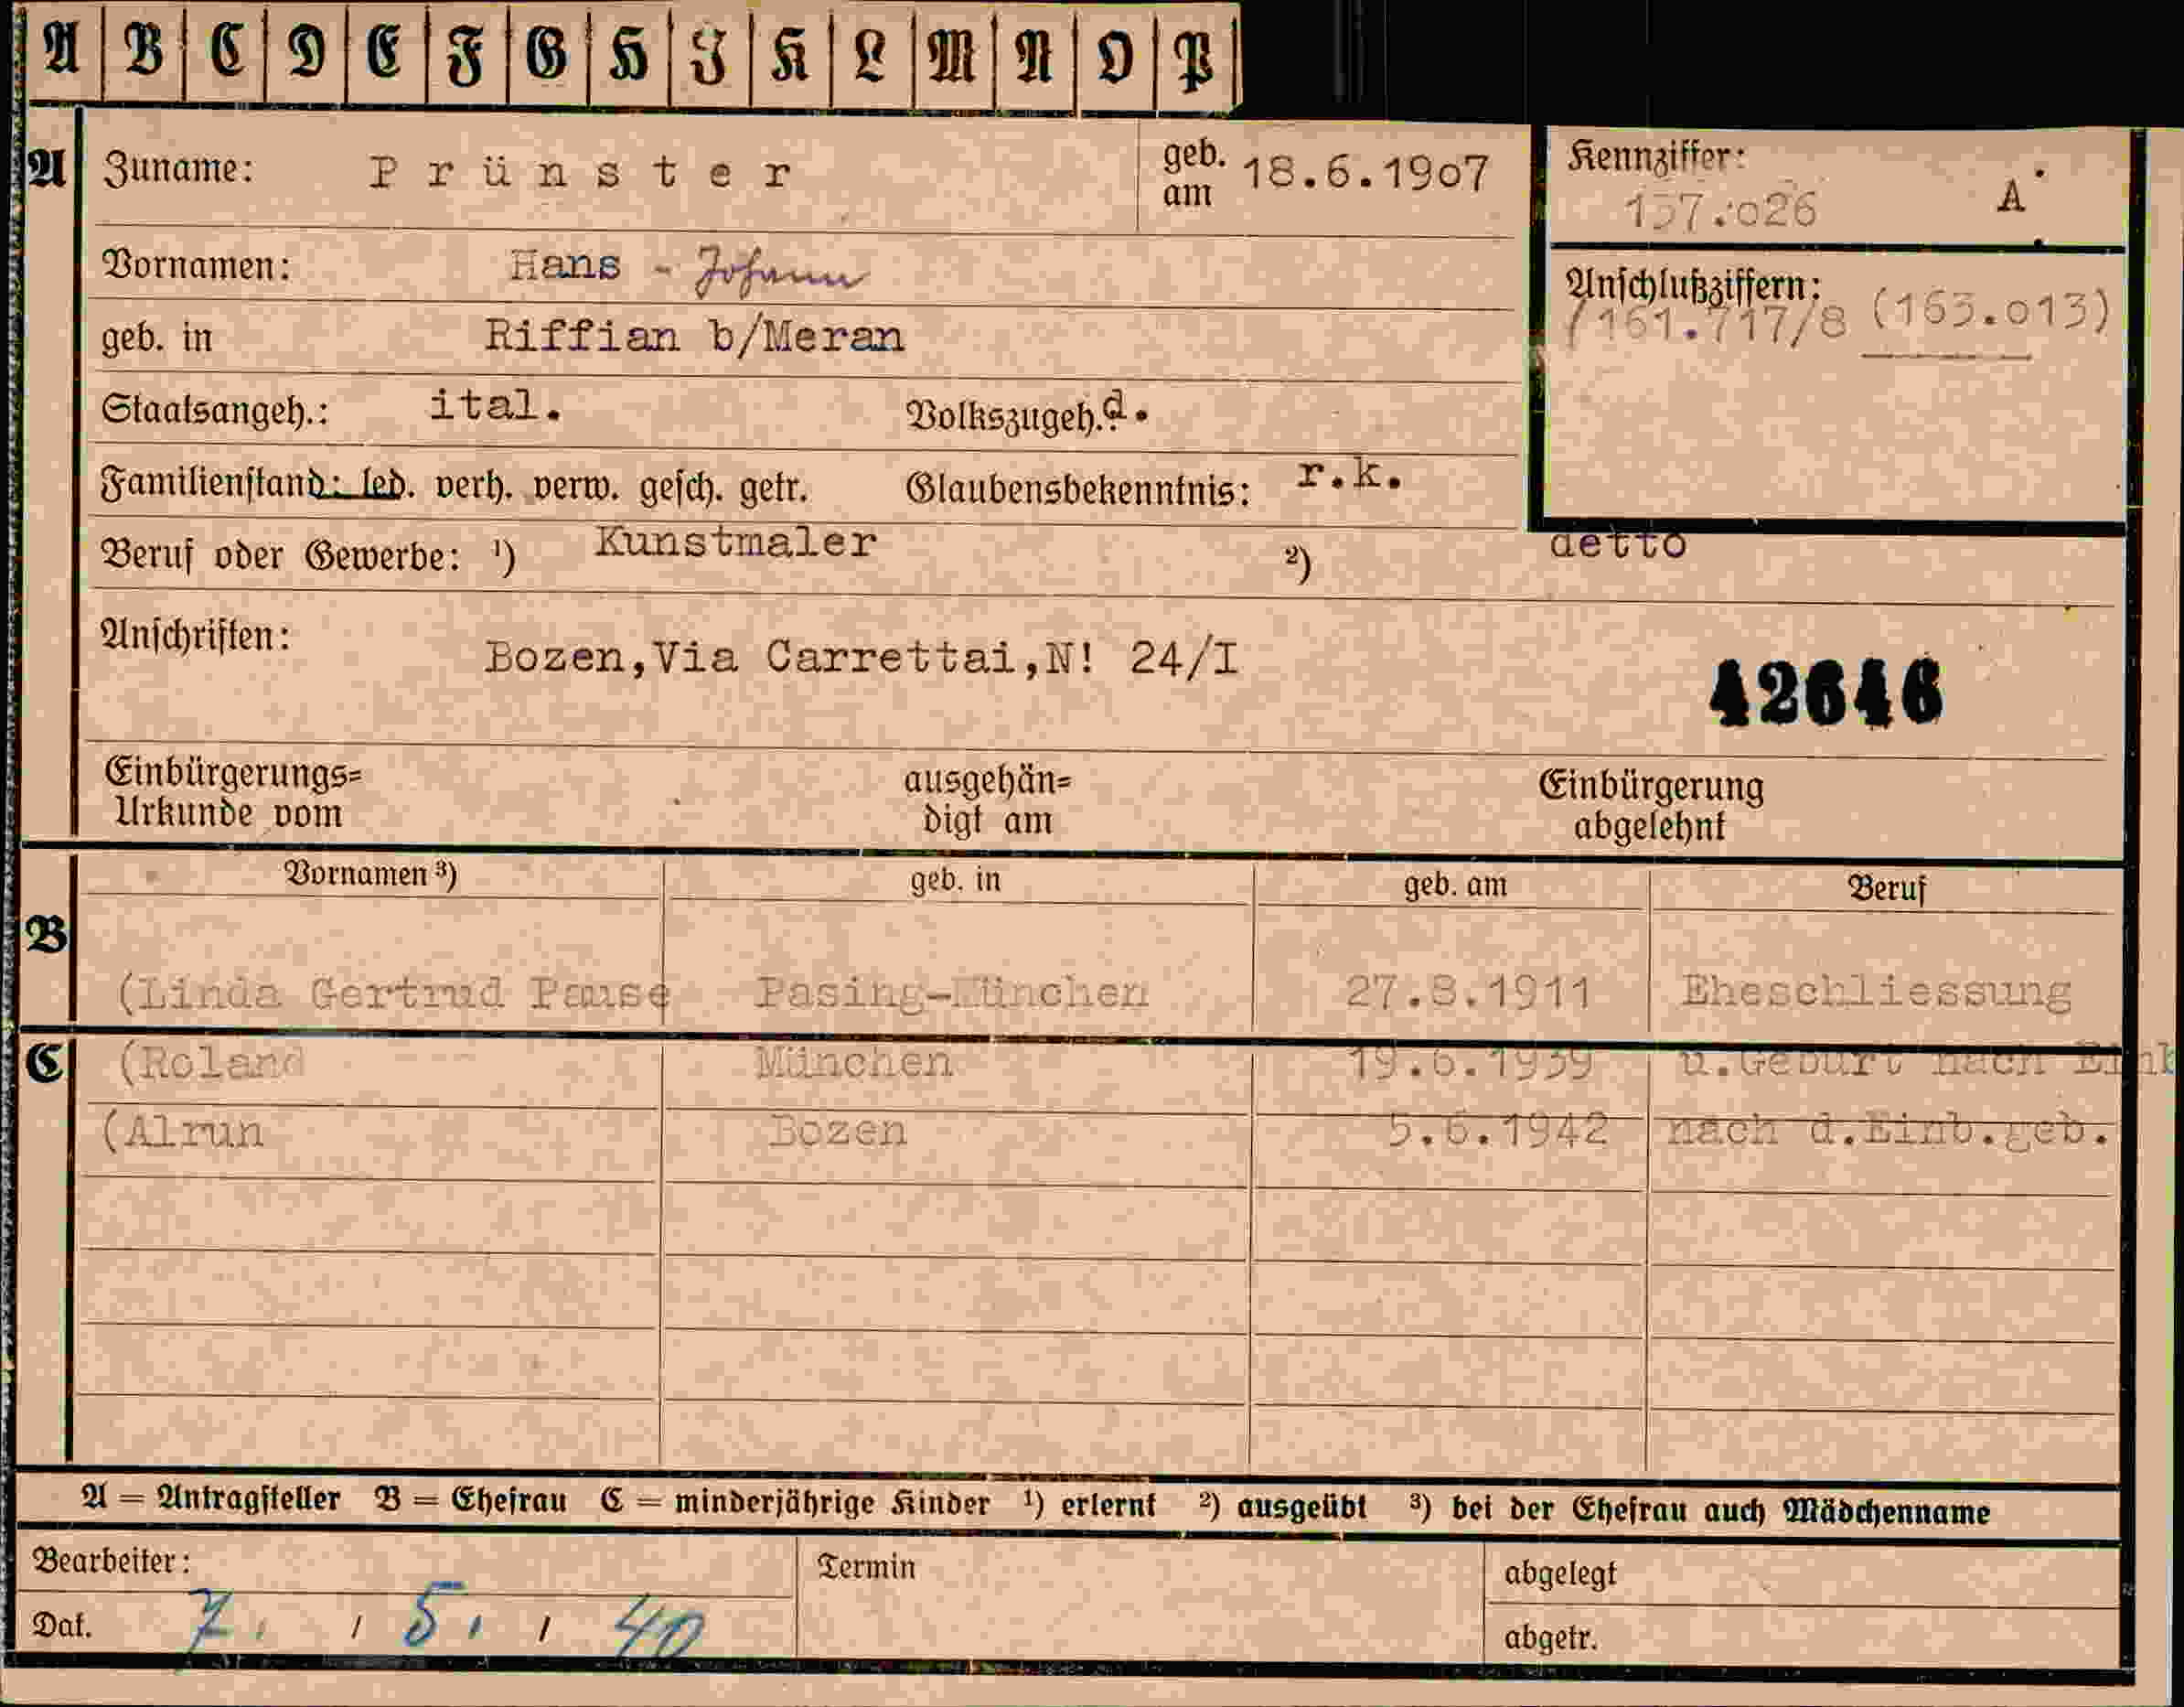 A B C D E F G H J K L M N O P
A Zuname: Prünster geb. am 18.6.19o7
Kennziffer: 157.o26 A
Vornamen: Hans - Johann
Anschlußziffern: /161.717/8 (163.o13)
geb. in Riffian b/Meran
Staatsangeh.: ital. Volkszugeh.: d.
Familienstand: led. verh. verw. gesch. getr. Glaubensbekenntnis: r.k.
Beruf oder Gewerbe: ¹) Kunstmaler ²) detto
Anschriften: Bozen,Via Carrettai,N! 24/I
42646
Einbürgerungs=
Urkunde vom
ausgehän=
digt am
Einbürgerung
abgelehnt
Vornamen ³) geb. in geb. am Beruf
B (Linda Gertrud Pause Pasing-München 27.8.1911 Eheschliessung
C (Roland München 19.6.1939 u.Geburt nach Einb
(Alrun Bozen 5.6.1942 nach d.Einb.geb.
A = Antragsteller B = Ehefrau C = minderjährige Kinder ¹) erlernt ²) ausgeübt ³) bei der Ehefrau auch Mädchenname
Bearbeiter: Termin abgelegt
Dat. 7. / 5. / 40 abgetr.